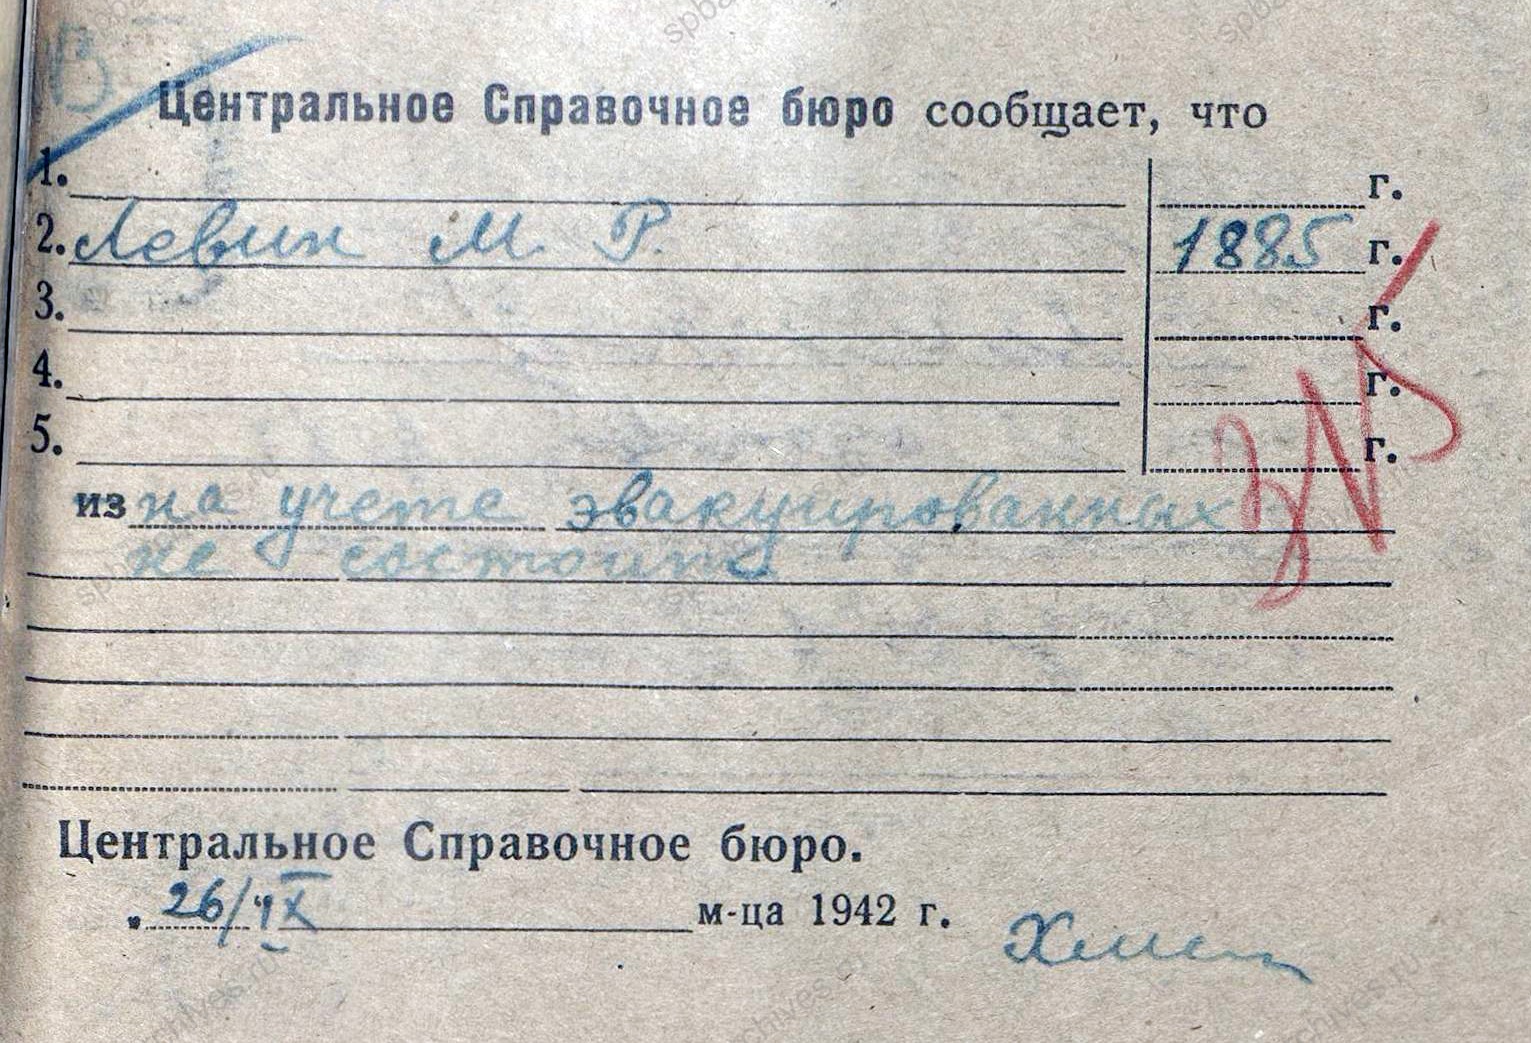 Центральное Справочное бюро сообщает, что
1. г.
2. Левин М. Р. 1885 г.
3. г.
4. г.
5. г.
из на учете эвакуированных
не состоит
Центральное Справочное бюро.
26/IX м-ца 1942 г.